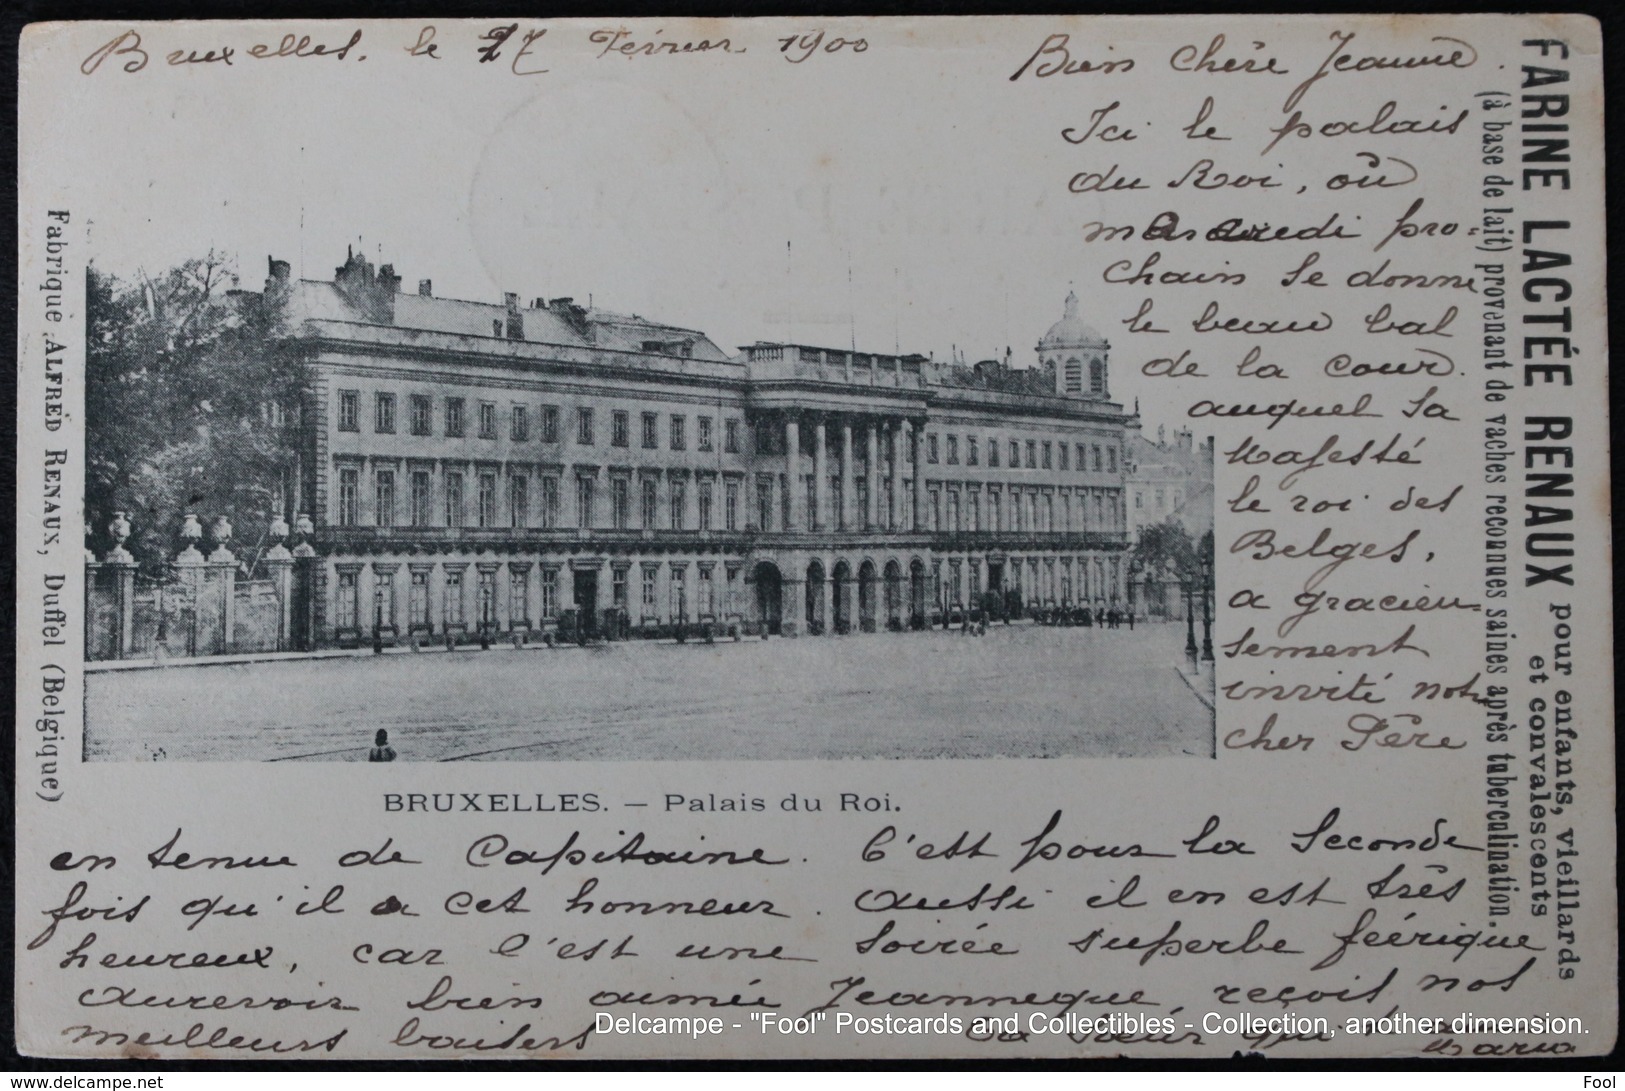 Bruxelles, le 27 Février 1900
Bien chère Jeanne.
Ici le palais
du Roi, où
mercredi pro-
chain se donne
le beau bal
de la cour.
auquel Sa
Majesté
le roi des
Belges,
a gracieu-
sement
invité notre
cher Père
en tenue de Capitaine. C'est pour la Seconde
fois qu'il a cet honneur. Aussi il en est très
heureux, car c'est une soirée superbe féérique
Aurevoir bien aimée Jeanneque, reçois nos
meilleurs baisers
Ta sœur qui t'
Maria
BRUXELLES. — Palais du Roi.
Fabrique ALFRED RENAUX, Duffel (Belgique)
FARINE LACTÉE RENAUX pour enfants, vieillards
et convalescents
(à base de lait) provenant de vaches reconnues saines après tuberculination.
Delcampe - "Fool" Postcards and Collectibles - Collection, another dimension.
www.delcampe.net
Fool